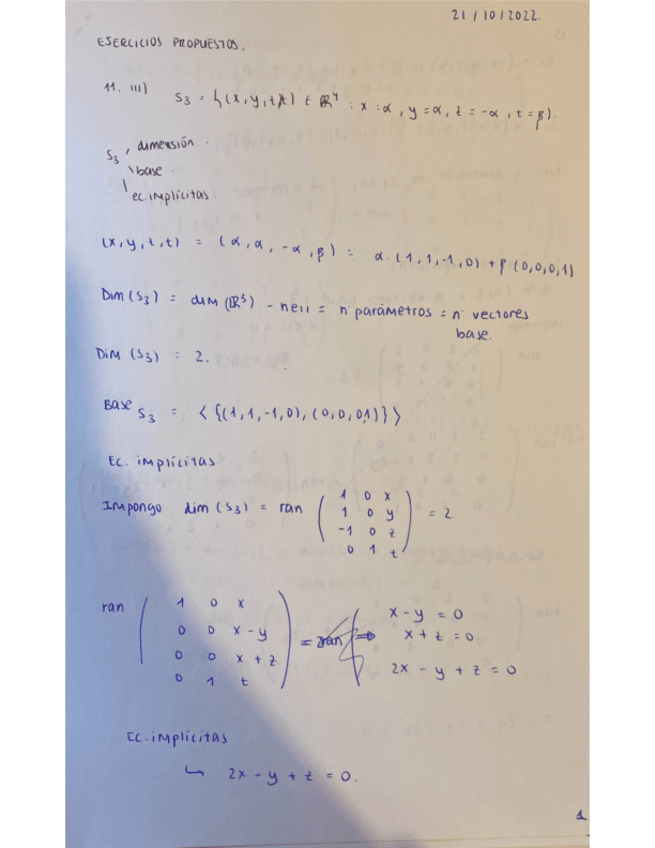 21/10/2022.
EJERCICIOS PROPUESTOS.
11. III) S3 = {(x, y, z, t) ∈ R⁴ : x = α, y = α, z = -α, t = β}.
S3, dimensión.
base.
ec. implícitas.
(x, y, z, t) = (α, α, -α, β) = α·(1,1,-1,0) + β (0,0,0,1)
Dim (S3) = dim (R⁵) - neii = nº parámetros = nº vectores
base.
Dim (S3) = 2.
Base S3 = < {(1,1,-1,0), (0,0,0,1)} >
Ec. implícitas
Impongo dim (S3) = ran ( 1 0 x
1 0 y
-1 0 z
0 1 t ) = 2
ran ( 1 0 x
0 0 x - y
0 0 x + z
0 1 t ) = ran ⇒
x - y = 0
x + z = 0
2x - y + z = 0
Ec. implícitas
↳ 2x - y + z = 0.
1